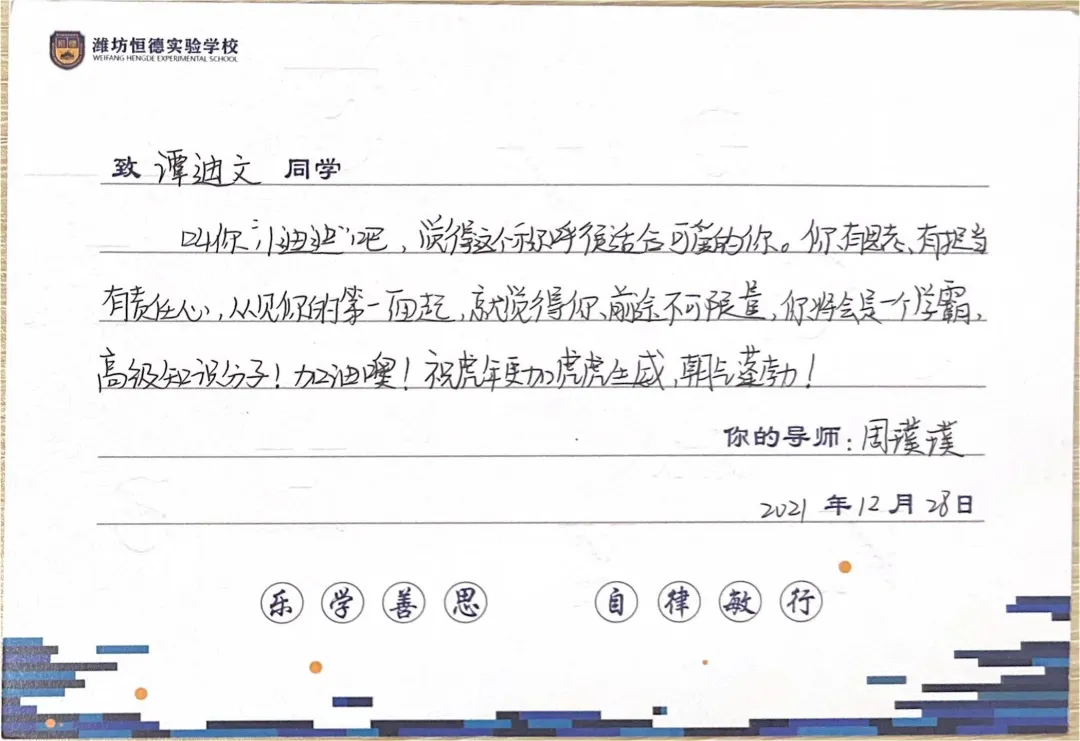 潍坊恒德实验学校
WEIFANG HENGDE EXPERIMENTAL SCHOOL
致 谭迪文 同学
叫你“迪迪”吧，觉得这个称呼很适合可爱的你。你有思考、有担当
有责任心，从见你的第一面起，就觉得你前途不可限量，你将会是一个学霸，
高级知识分子！加油噢！祝虎年更加虎虎生威，朝气蓬勃！
你的导师：周璞璞
2021 年 12 月 28 日
乐学善思 自律敏行